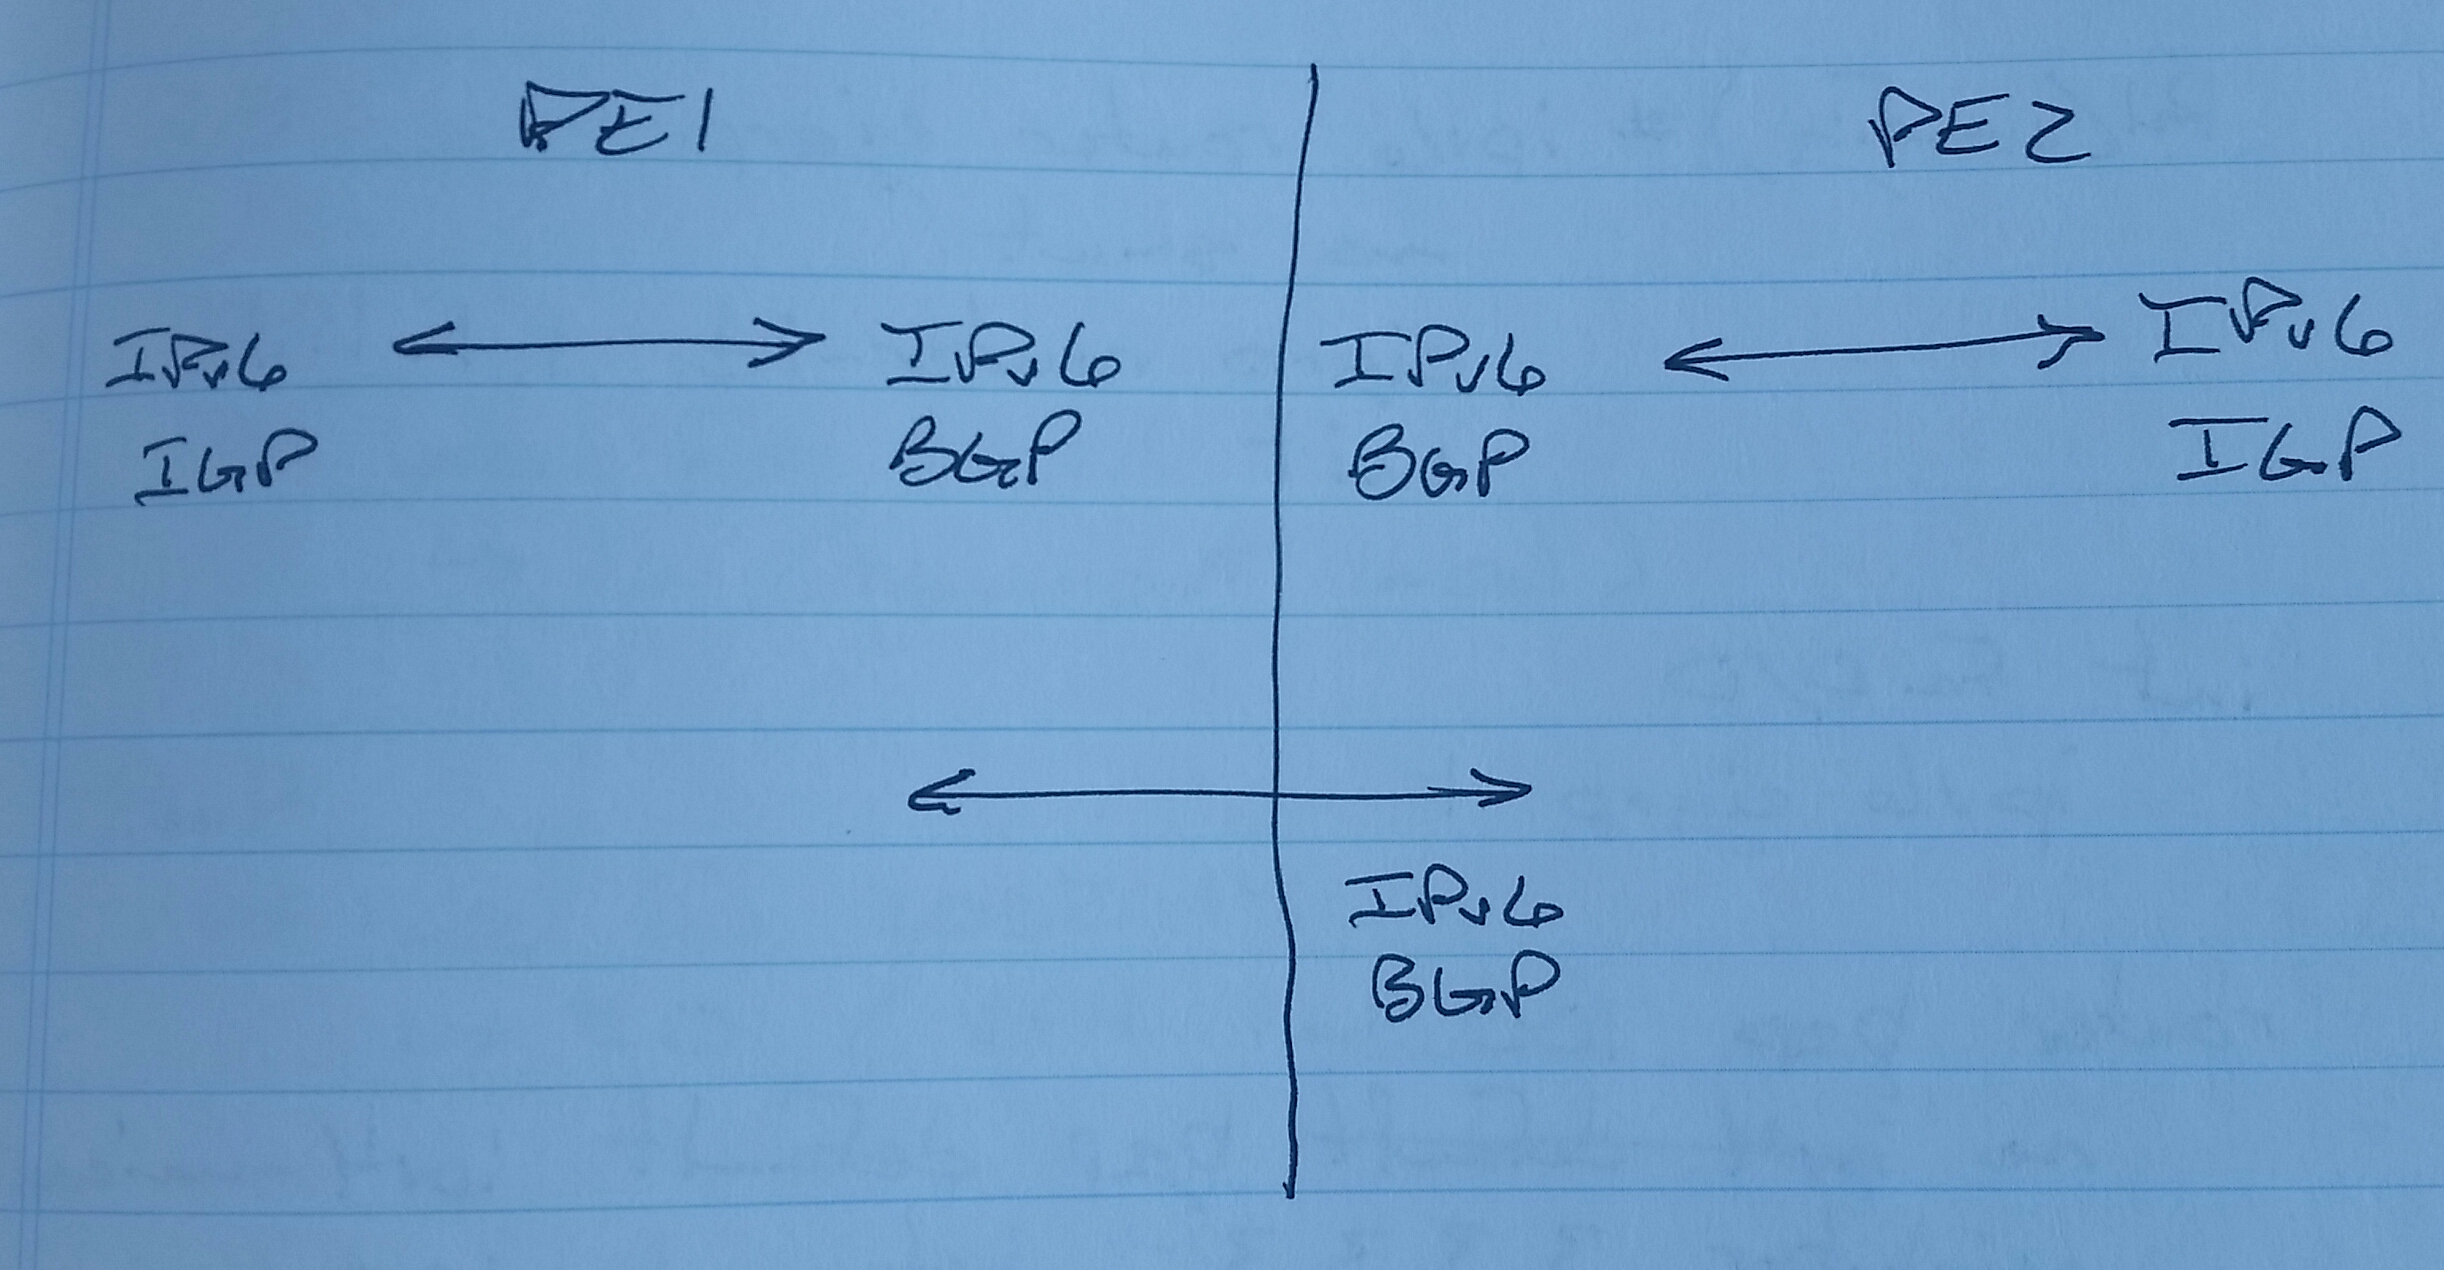 PE1
PE2
IPv6
IGP
IPv6
BGP
IPv6
BGP
IPv6
IGP
IPv6
BGP